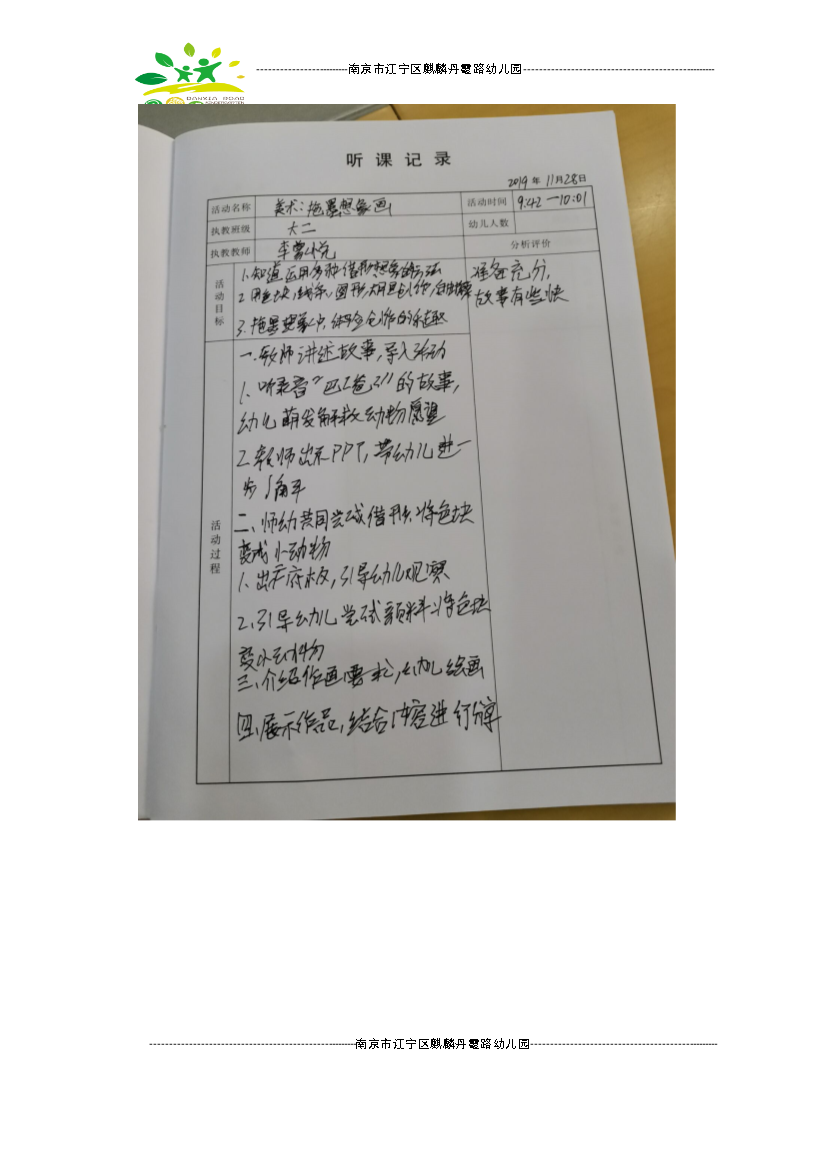 南京市江宁区麒麟丹霞路幼儿园
DANXIA ROAD
KINDERGARTEN
听课记录
2019年11月28日
活动名称 美术：拖墨想象画 活动时间 9:42—10:01
执教班级 大二 幼儿人数
执教教师 李 分析评价
活动目标
1.知道运用多种借形想象的方法
2.用色块，线条，图形大胆创作，
3.拖墨想象中，体验创作的乐趣
准备充分，
故事有些快
活动过程
一.教师讲述故事，导入活动
1、听录音“巴 ”的故事，
幼儿萌发解救动物愿望
2.教师出示PPT，带幼儿进一
步了解
二、师幼共同尝试借形，将色块
变成小动物
1、出示 板，引导幼儿观察
2、引导幼儿尝试颜料将色块
变小动物
三、介绍作画要求，幼儿绘画
四、展示作品，结合内容进行分享
南京市江宁区麒麟丹霞路幼儿园